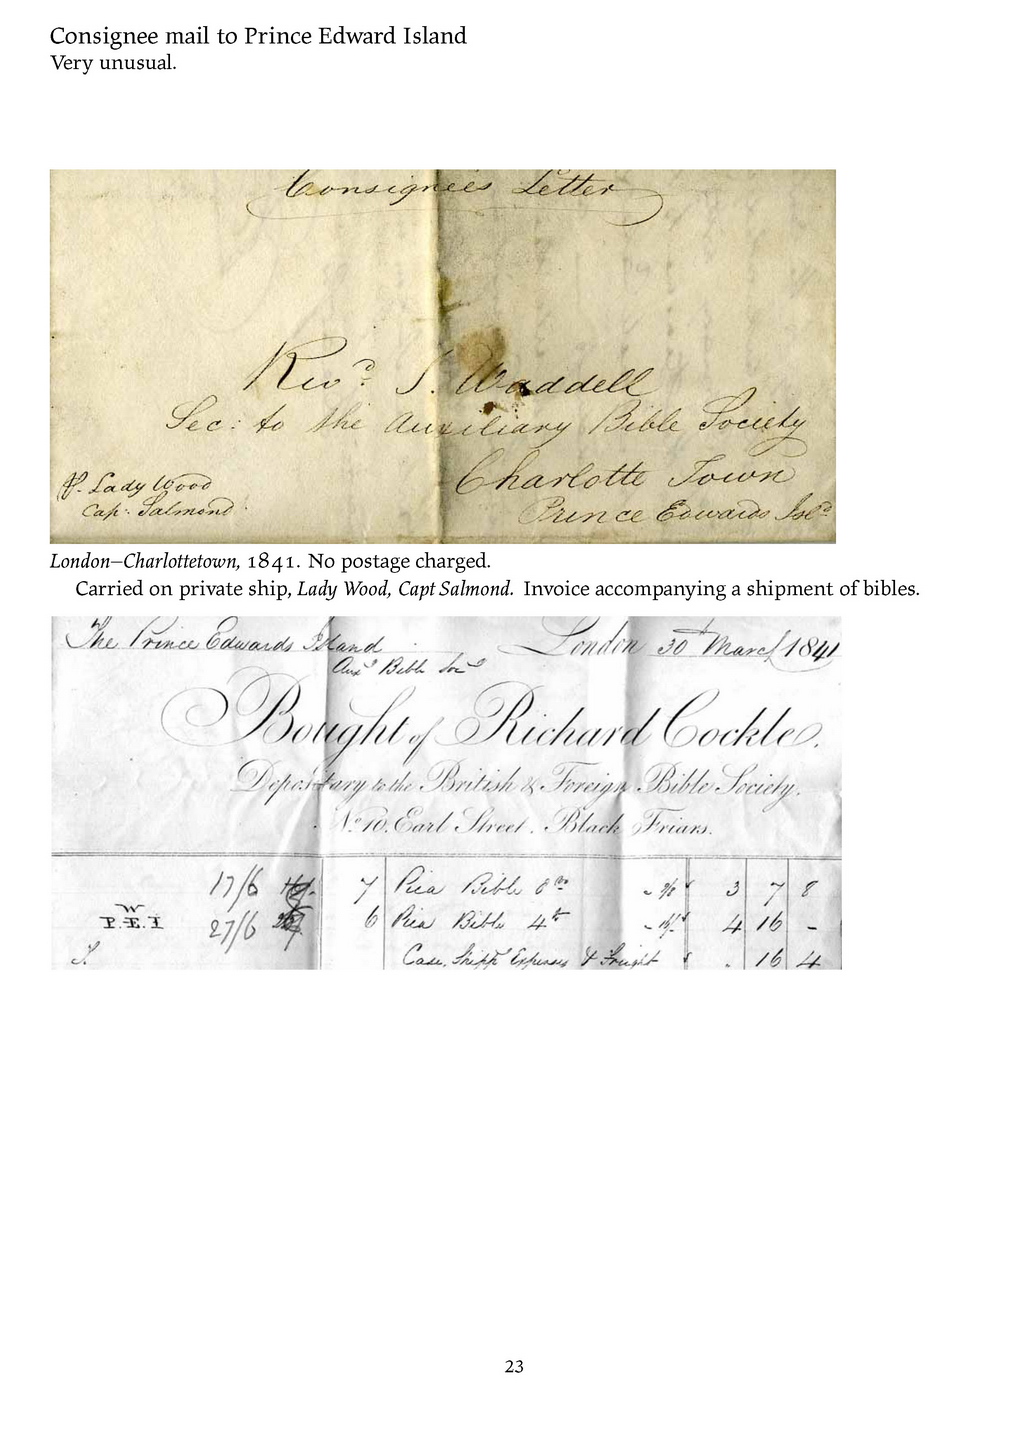 Consignee mail to Prince Edward Island
Very unusual.
Consignees Letter
Revd. J. Waddell
Sec: to the Auxiliary Bible Society
Charlotte Town
Prince Edwards Isld
p. Lady Wood
Capt. Salmond
London–Charlottetown, 1841. No postage charged.
Carried on private ship, Lady Wood, Capt Salmond. Invoice accompanying a shipment of bibles.
The Prince Edwards Island London 30th March 1841
Auxy Bible Socy
Bought of Richard Cockle.
Depositary to the British & Foreign Bible Society.
No. 10, Earl Street, Black Friars.
17/6 7 Pica Bible 8vo 3 7 8
W
P.E.I
27/6 6 Pica Bible 4to 4 16 -
Case, Shipg Expenses & Freight . 16 4
23